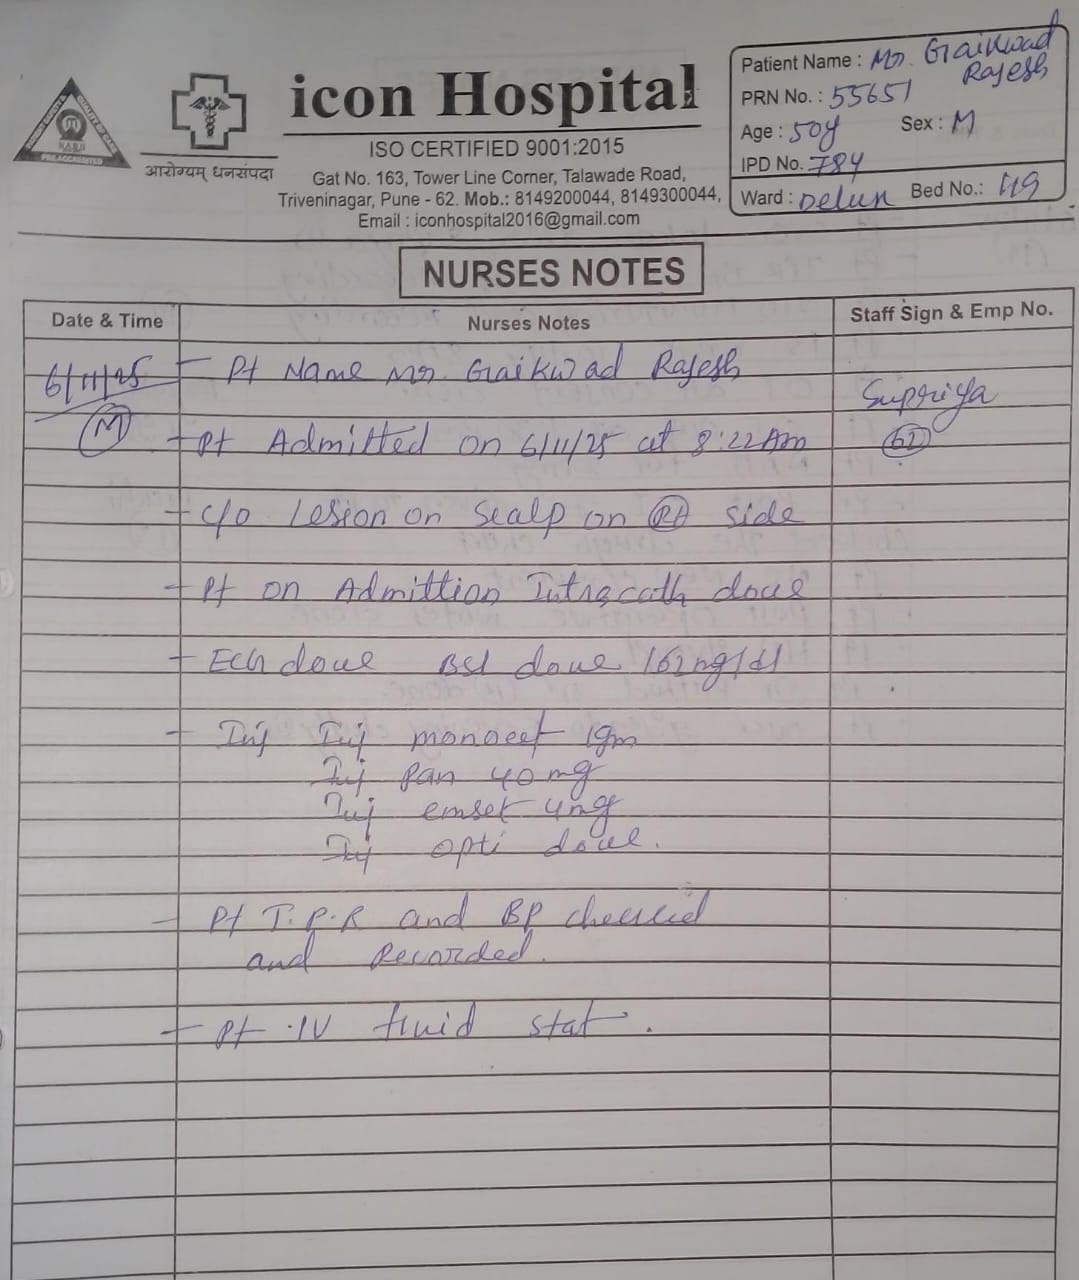 icon Hospital
ISO CERTIFIED 9001:2015
आरोग्यम् धनसंपदा
Gat No. 163, Tower Line Corner, Talawade Road,
Triveninagar, Pune - 62. Mob.: 8149200044, 8149300044,
Email : iconhospital2016@gmail.com
PRE ACCREDITED
Patient Name : Mr. Gaikwad
Rajesh
PRN No. : 55651
Age : 50y Sex : M
IPD No. 784
Ward : Delux Bed No.: 419
NURSES NOTES
Date & Time Nurses Notes Staff Sign & Emp No.
6/11/25 - Pt Name Mr. Gaikwad Rajesh Supriya
M - Pt Admitted on 6/11/25 at 8:22 Am
- c/o Lesion on Scalp on Rt side
- Pt on Admittion Intracath done
- Ech done BSL done 162mg/dl
- Inj Inj monocef 1gm
Inj Pan 40 mg
Inj emset 4mg
Inj opti done.
- Pt T.P.R and BP checked
and Recorded.
- Pt IV fluid stat.